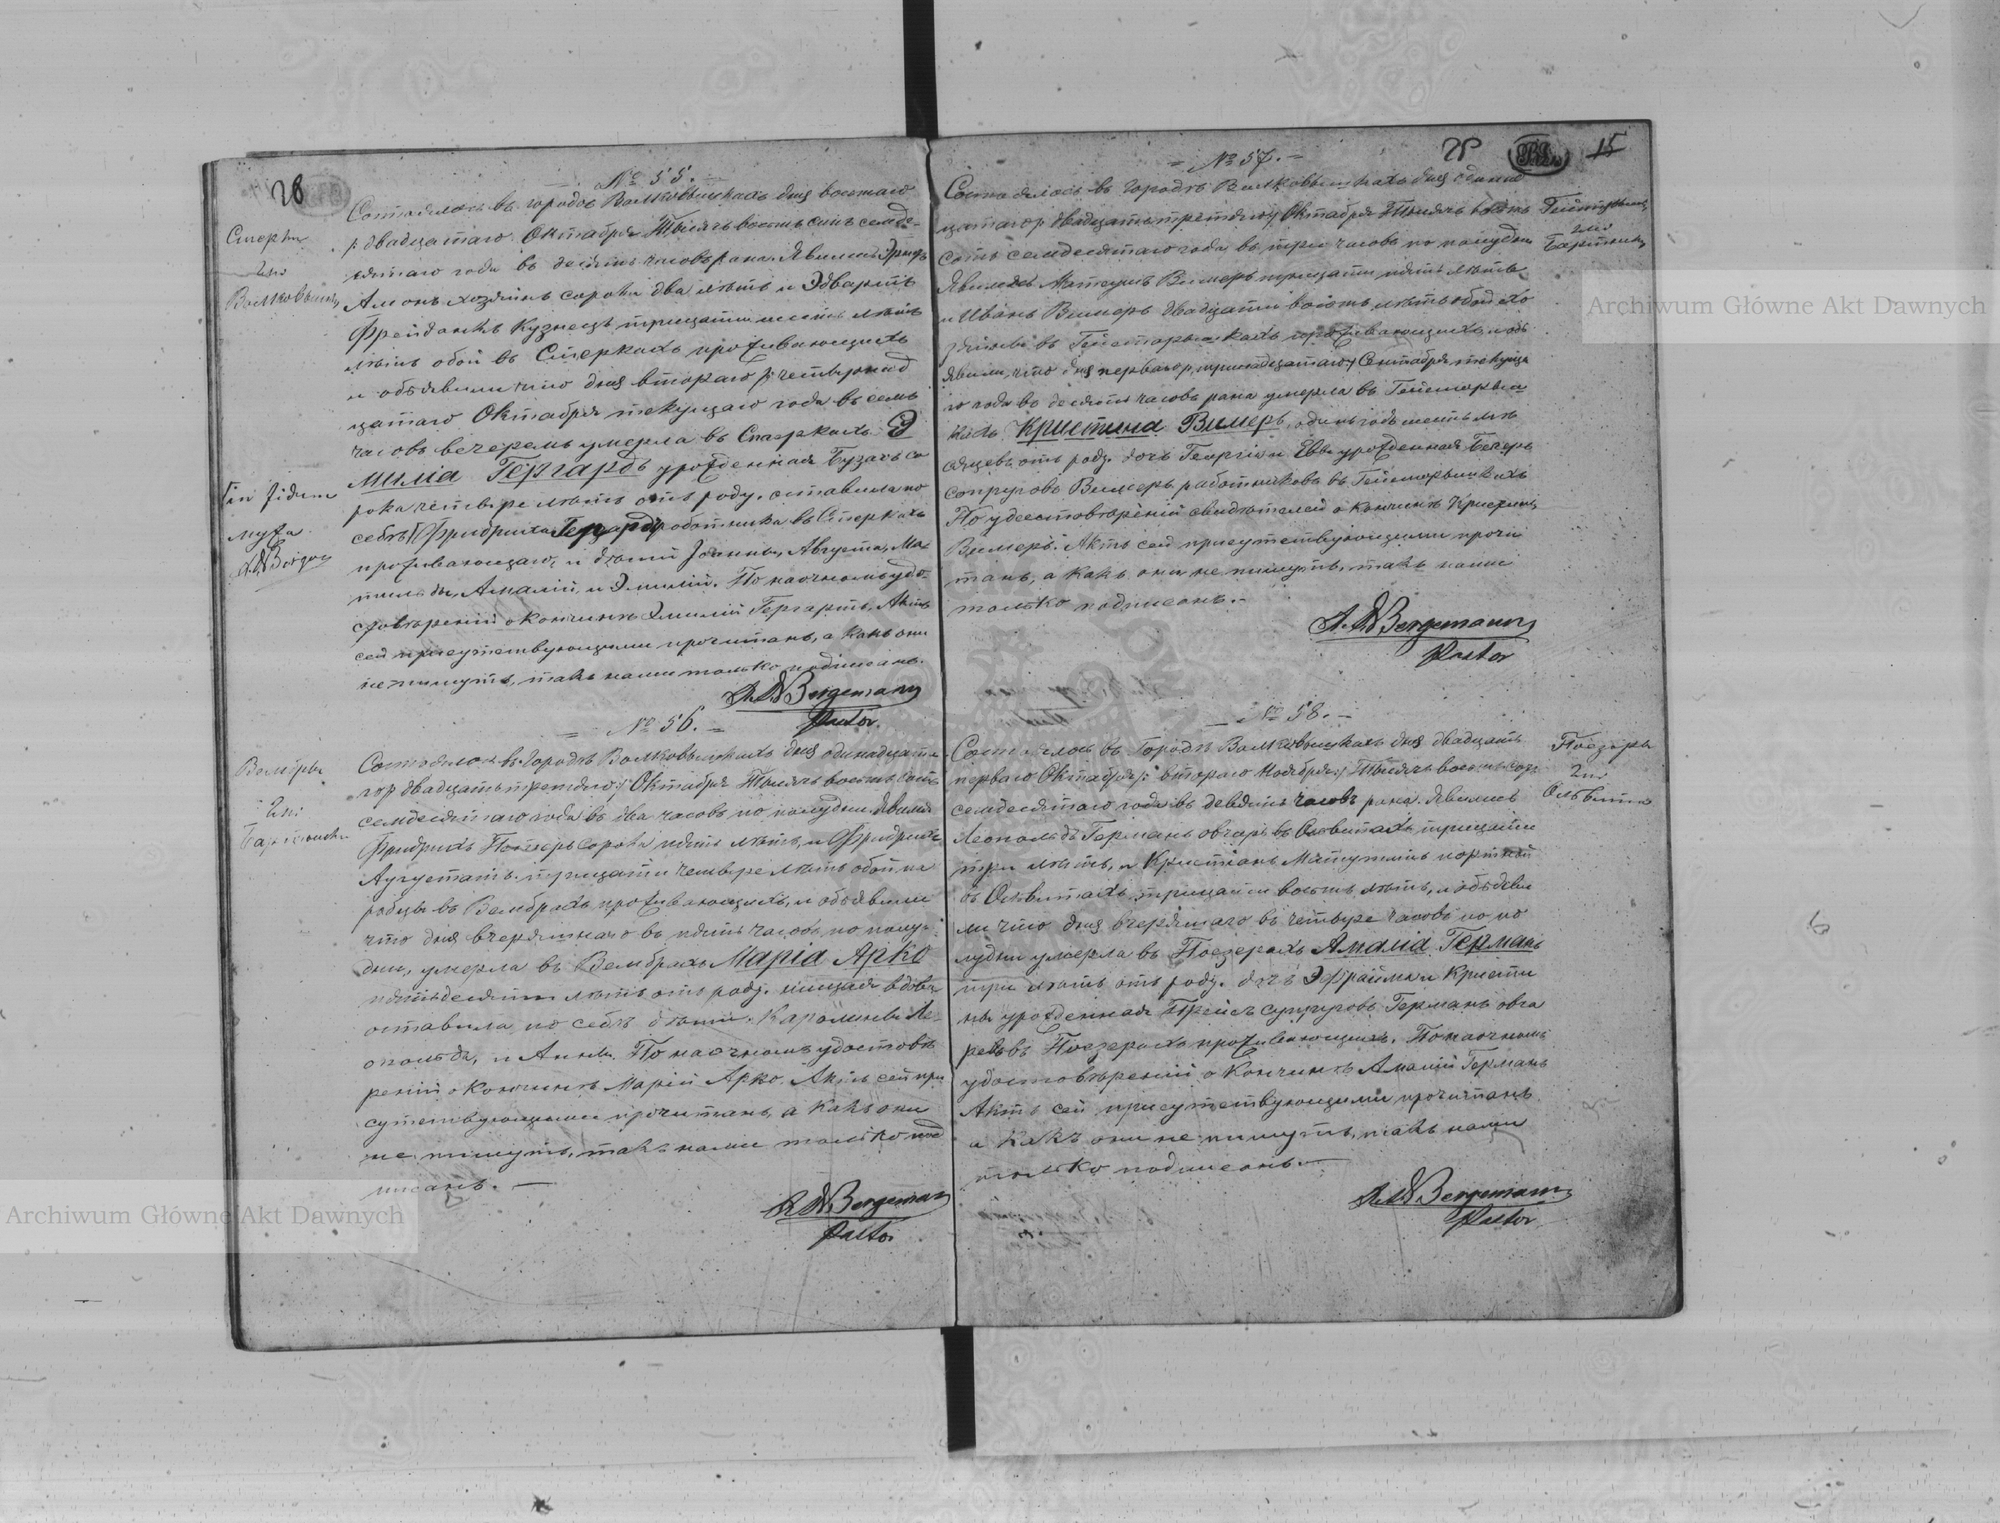 28
№ 55.
Сперки
гми
Волковышки
Состоялось въ городѣ Волковышкахъ дня восьмаго
/: двадцатаго Октября Тысяча восемьсотъ семде-
сятаго года въ десять часовъ рана. Явились
Амонъ хозяинъ сорокъ два лѣтъ и Эдвартъ
Фрейданкъ кузнецъ тридцати шесть лѣтъ
лѣтъ обои въ Сперкахъ проживающихъ
и объявили что дня втораго /: четырнад
цатаго Октября текущаго года въ семь
часовъ вечеромъ умерла въ Сперкахъ Э
милія Гергардъ урожденная Бузахъ со
рока четыре лѣтъ отъ роду, оставила по
себѣ Фридриха Гергардъ работника въ Сперкахъ
проживающаго, и дѣтей Іоанны, Августа, Ма
тильды, Амаліи, и Эмиліи. По наочномъ удо-
стовѣреніи о кончинѣ Эмиліи Гергартъ, Актъ
сей присутствующими прочитанъ, а какъ они
не пишутъ, такъ нами только подписанъ.
мужа
A. W Bergemann
Pastor.
№ 56.
Вембры
гми:
Состоялось въ Городѣ Волковышкахъ дня одинадцата-
го /: двадцать третяго :/ Октября Тысяча восемьсотъ
семдесятаго года въ два часовъ по полудни. Явились
Фридрихъ сорока пять лѣтъ, и Фридрихъ
Аугустатъ тридцати четыре лѣтъ обои на
робцы въ Вембрахъ проживающихъ, и объявили
что дня вчерашнаго въ пять часовъ по полу-
дни, умерла въ Вембрахъ Марія Арко
пятьдесяти лѣтъ отъ роду. нищая вдова
оставила по себѣ дѣтей. Каролины Ле-
опольда, и Анны. По наочномъ удостовѣ
реніи о кончинѣ Маріи Арко. Актъ сей при
сутствующими прочитанъ а какъ они
не пишутъ, такъ нами только под
писанъ. —
A. W Bergemann
Pastor
28
15
№ 57.
Состоялось въ Городѣ Волковышкахъ дня одинад
цатаго /: двадцать третяго :/ Октября Тысяча восемь
сотъ семдесятаго года въ три часовъ по полудни
Явились Матеушъ Вимеръ тридцати пять лѣтъ
и Иванъ Вимеръ двадцати восемь лѣтъ обои хо
зяины въ проживающихъ, и объ
явили, что дня перваго /: тринадцатаго :/ Сентября текуща
го года въ десять часовъ рана умерла въ
кахъ Кристина Вимеръ, одинъ годъ шесть мѣ
сяцевъ отъ роду. дочь Георгія и Евы урожденная Бечеръ
супруговъ Вимеръ работниковъ въ
По удостовѣреніи свидѣтелей о кончинѣ Кристины
Вимеръ. Актъ сей присутствующими прочи
танъ, а какъ они не пишутъ, такъ нами
только подписанъ. –
A. W Bergemann
Pastor
№ 58. –
Поезеры
гми
Ольвита
Состоялось въ Городѣ Волковышкахъ дня двадцать
перваго Октября /: втораго Ноября :/ Тысяча восемьсотъ
семдесятаго года въ девять часовъ рана. Явились
Леопольдъ Германъ овчаръ въ Ольвитахъ тридцати
три лѣтъ, и Кристіанъ Матутатъ портной
въ Ольвитахъ тридцати восемь лѣтъ, и объяви
ли что дня вчерашнаго въ четыре часовъ по по
лудни умерла въ Поезерахъ Амалія Германъ
три лѣтъ отъ роду. дочъ Эфраима и Кристи
ны урожденная Прейсъ супруговъ Германъ овча
ревъ въ Поезерахъ проживающихъ. По наочномъ
удостовѣреніи о кончинѣ Амаліи Германъ
Актъ сей присутствующими прочитанъ
а какъ они не пишутъ, такъ нами
только подписанъ. —
A. W Bergemann
Pastor
Archiwum Główne Akt Dawnych
Archiwum Główne Akt Dawnych